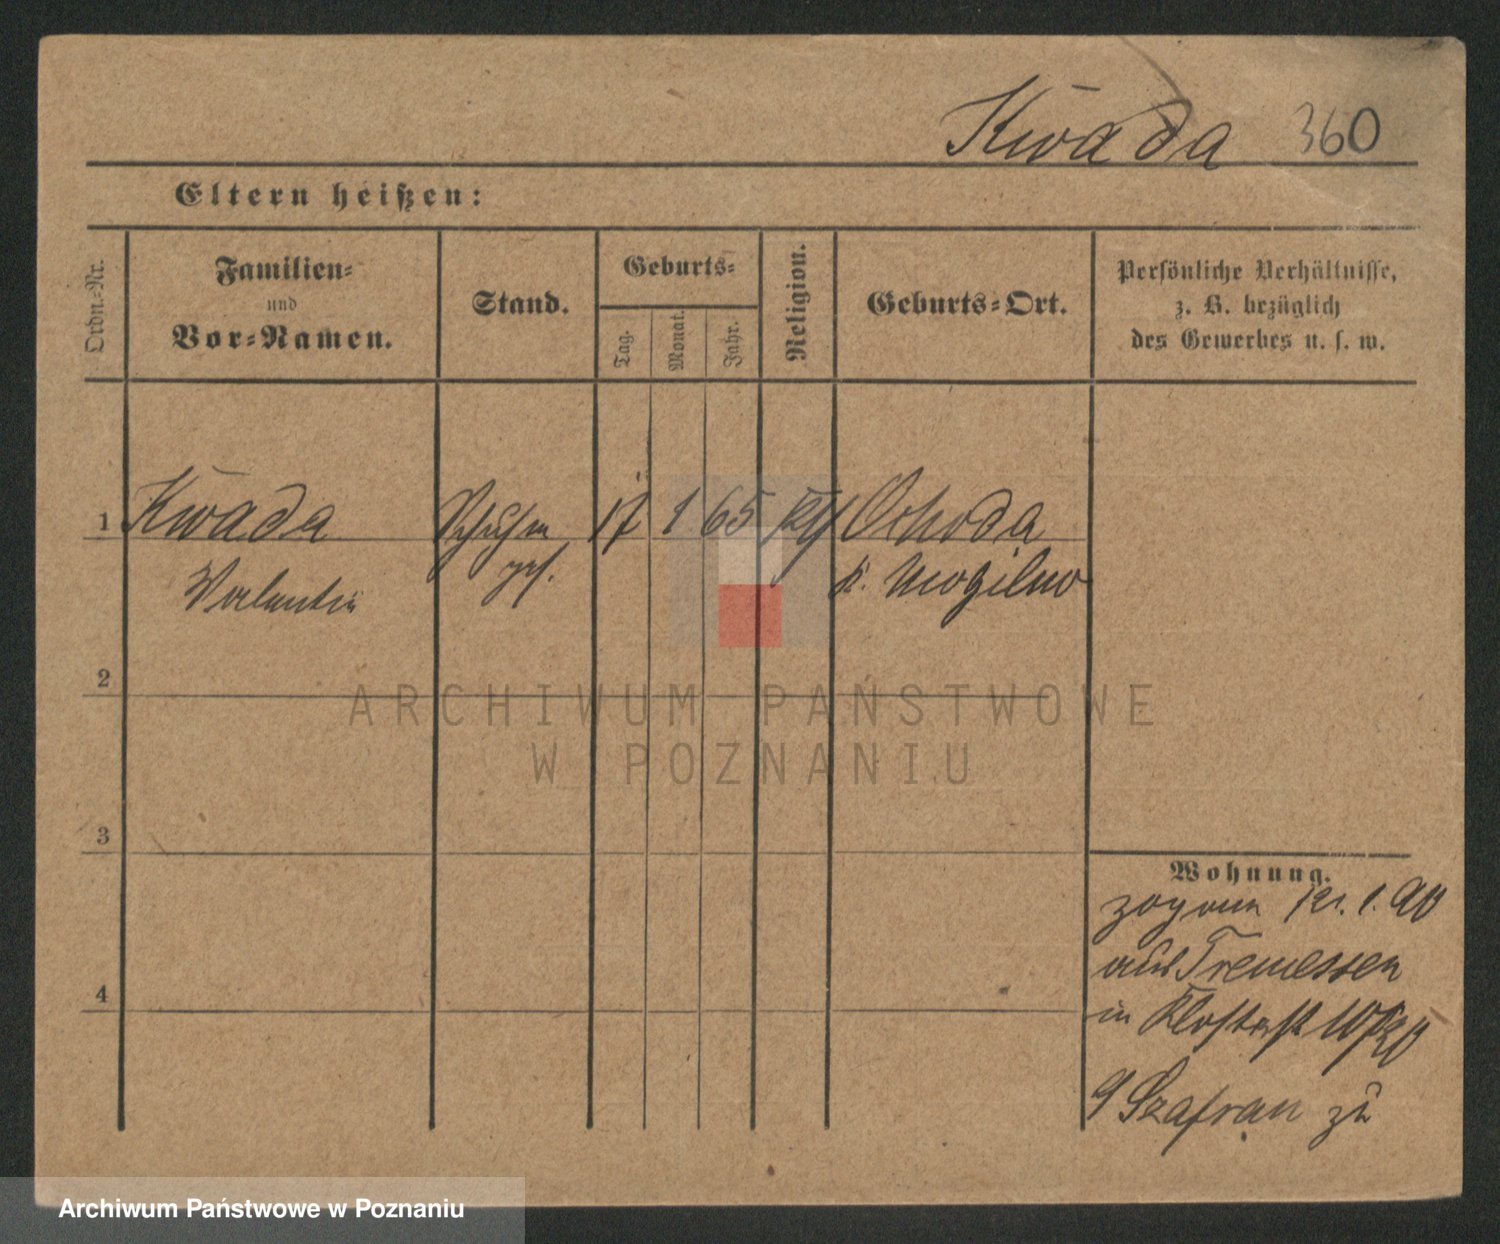 Kwada 360
Eltern heißen:
Ordn.-Nr.
Familien-
und
Vor-Namen.
Stand.
Geburts-
Tag.
Monat.
Jahr.
Religion.
Geburts-Ort.
Persönliche Verhältnisse,
z. B. bezüglich
des Gewerbes u. s. w.
1 Kwada 17 1 65
Valentin
k. Mogilno
2
ARCHIWUM PAŃSTWOWE
W POZNANIU
3
4
Wohnung.
zog am 1. 90
aus Tremessen
in Klosterst
Szafran zu
Archiwum Państwowe w Poznaniu